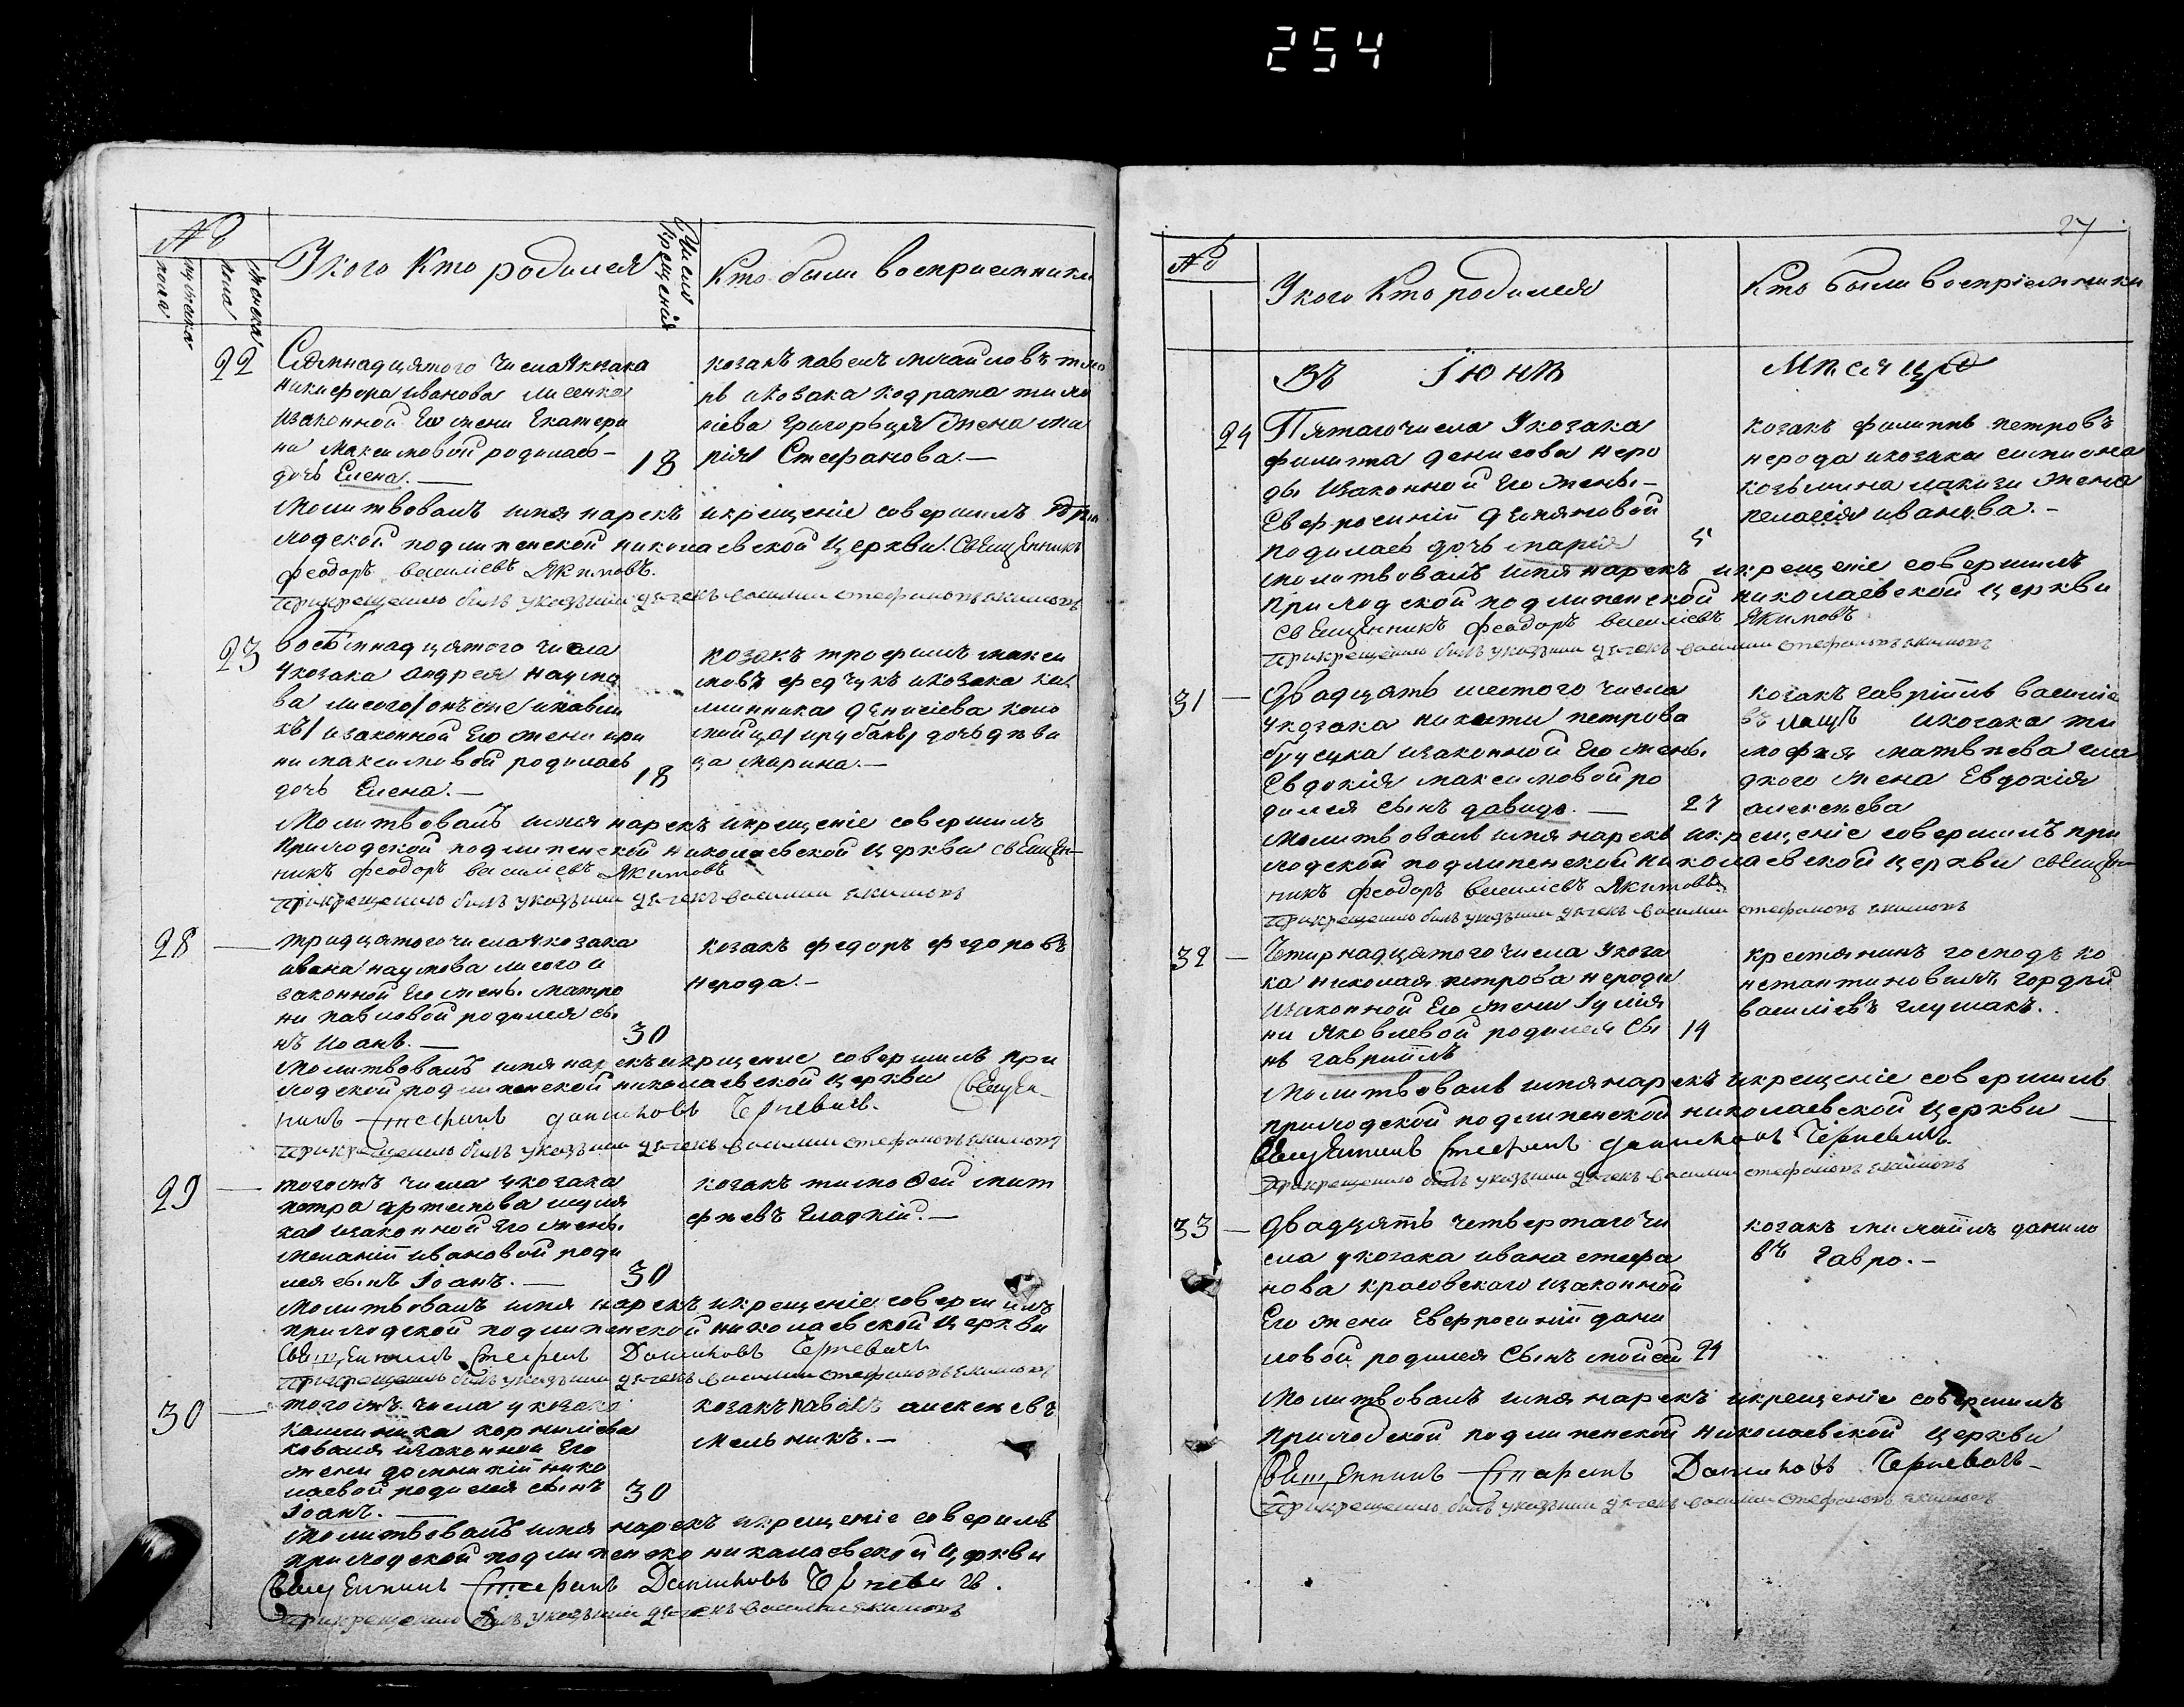 254
№
мужеска пола
женска пола
У кого кто родился
Число крещенія
Кто были восприемники
22
Семнадцятого числа у козака
никифора иванова лисенка
изаконной Его жени Екатери
ни максимовой родилась
дочь Елена. —
18
козакъ павелъ михайловъ
икозака кодрата тимо
ѳіева григорьця жена ма
рія Стефанова. —
Молитвовалъ имя нарекъ икрещеніе совершилъ при
лодской подлипенской николаевской церкви. Священникъ
феодоръ василіевъ Якимовъ.
прикрещеніи билъ указніи дячекъ василии стефановъ якимовъ
23
восѣмнадцятого числа
укозака андрея наумо
ва лисого
изаконной Его жени ири
ни максимовой родилась
дочь Елена. —
18
козакъ трофимъ макси
мовъ федчукъ икозака ка
линника денисіева коло
мийця дочь дѣви
ца марина. —
Молитвовалъ имя нарекъ икрещеніе совершилъ
прилодской подлипенской николаевской церкви священ—
никъ феодоръ василіевъ Якимовъ
прикрещеніи билъ указніи дячекъ василии якимовъ
28
тридцятого числа укозака
ивана наумова лисого и
законной Его жены матро
ни павловой родился сы
нъ иоанъ. —
30
козакъ федоръ федоровъ
нерода. —
Молитвовалъ имя нарекъ икрещение совершилъ при
лодской подлипенской николаевской церкви Священ—
никъ Стефанъ даниловъ Черневичъ.
прикрещеніи билъ указніи дячекъ василии стефановъ якимовъ
29
тогожъ числа укозака
петра артемова
изаконной Его жены
меланіи ивановой роди
лся сынъ Іоанъ. —
30
козакъ тимоѳей мат
фѣевъ гладкій. —
Молитвовалъ имя нарекъ икрещеніе совершилъ
прилодской подлипенской николаевской церкви
Священникъ Стефанъ Даниловъ Черневичъ
прикрещеніи билъ указніи дячекъ василии стефановъ якимовъ
30
тогожъ числа у козака
калиника корниліева
коваля изаконной Его
жени домникіи нико
лаевой родился сынъ
Іоанъ. —
30
козакъ павелъ алексѣевъ
мельникъ. —
Молитвовалъ имя нарекъ икрещеніе соверилъ
прилодской подлипенско николаевской церкви
Священникъ Стефанъ Даниловъ Черневичъ.
прикрещеніи билъ указніи дячекъ василии якимовъ
27
№
У кого кто родился
Кто были воспріемники
Въ Іюнѣ Мѣсяцѣ
24
Пятаго числа У козака
филипа денисова неро
ды изаконной Его жены —
Евфросиніи демяновой
родилась дочь марія
5
козакъ филипъ петровъ
нерода икозака симиона
козьмина лакизи жена
пелагія иванова. —
молитвовалъ имя нарекъ икрещеніе совершилъ
при лодской подлипенской николаевской церкви
священникъ феодоръ василіевъ Якимовъ
прикрещеніи билъ указніи дячекъ василии стефановъ якимовъ
31
Двадцять шестого числа
укозака никити петрова
изаконной Его жены
Евдокія максимовой ро
дился сынъ давидъ. —
27
козакъ гавріилъ василіе
въ лащъ икозака ти
мофея матвѣева гла
дкого жена Евдокія
алексѣева
молитвовалъ имя нарекъ икрещеніе совершилъ при
лодской подлипенской николаевской церкви священ—
никъ феодоръ василіевъ Якимовъ
прикрещеніи билъ указніи дячекъ василии стефановъ якимовъ
32
Четирнадцятого числа у коза
ка николая петрова нероди
изаконной Его жени Іулія
ни яковлевой родился сы
нъ гавриилъ
14
крестянинъ господъ ко
нстантиновичъ гордѣй
василіевъ глушакъ.
Молитвовалъ имя нарекъ икрещеніе совершилъ
прилодской подлипенской николаевской церкви —
Священникъ Стефанъ Даниловъ Черневичъ.
прикрещеніи билъ указніи дячекъ василии стефановъ якимовъ
33
Двадцять четвертаго чи
сла у козака ивана стефа
нова красовскаго изаконной
Его жени Евфросиніи дани
ловой родился Сынъ мойсей
24
козакъ михаилъ данило
въ гавро. —
Молитвовалъ имя нарекъ икрещеніе совершилъ
прилодской подлипенской николаевской церкви
Священникъ Стефанъ Даниловъ Черневичъ—
прикрещеніи билъ указніи дячекъ василии стефановъ якимовъ